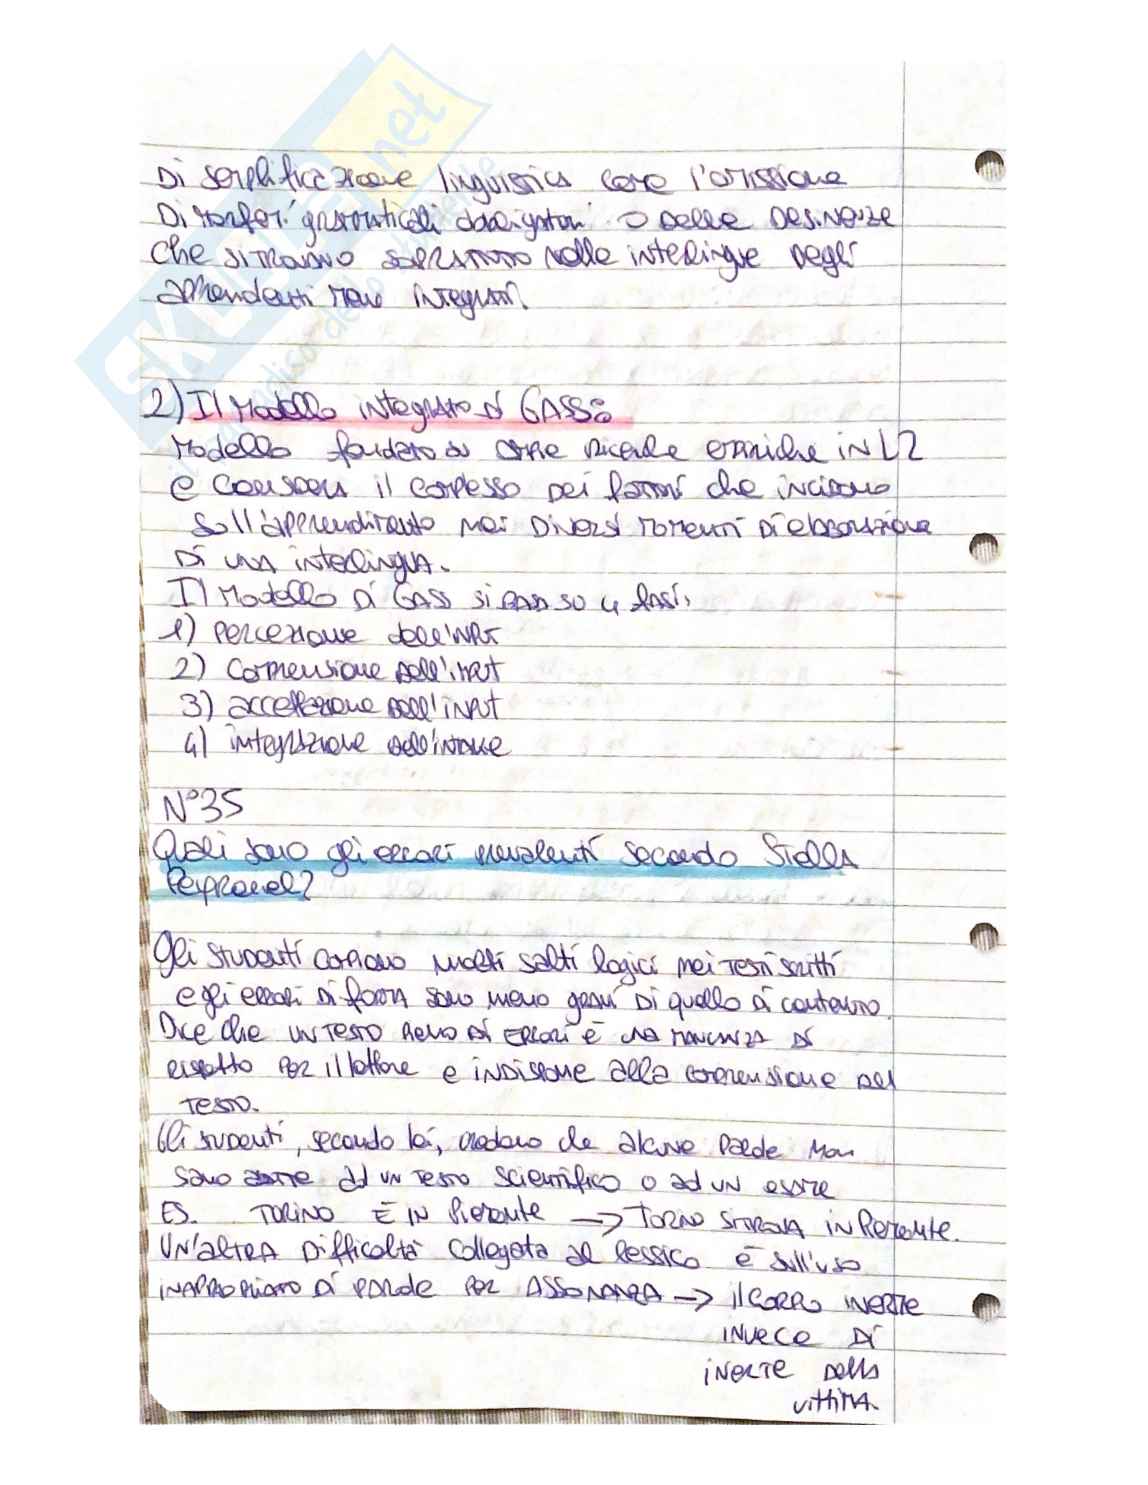 SKUOLA.net
il paradiso dello studente
Di semplificazione linguistica come l'omissione
Di morfemi grammaticali obbligatori o delle desinenze
che si trovano soprattutto nelle interlingue degli
apprendenti meno integrati.
2) Il modello integrato di GASS:
Modello fondato su ricerche empiriche in L2
e considera il complesso dei fattori che incidono
sull'apprendimento nei diversi momenti di elaborazione
di una interlingua.
Il modello di Gass si basa su 4 fasi:
1) percezione dell'input
2) comprensione dell'input
3) accettazione dell'input
4) integrazione dell'intake
N°35
Quali sono gli errori prevalenti secondo Stella
Peyronel?
Gli studenti compiono molti salti logici nei testi scritti
e gli errori di forma sono meno gravi di quello di contenuto.
Dice che un testo pieno di errori è una mancanza di
rispetto per il lettore e indispone alla comprensione del
testo.
Gli studenti, secondo lei, credono che alcune parole non
sono adatte ad un testo scientifico o ad un esame
ES. TORINO È IN Piemonte → TORINO SI TROVA in Piemonte.
UN'ALTRA Difficoltà collegata al lessico è sull'uso
inappropriato di parole per ASSONANZA → il corpo inerte
INVECE DI
inerme della
vittima.